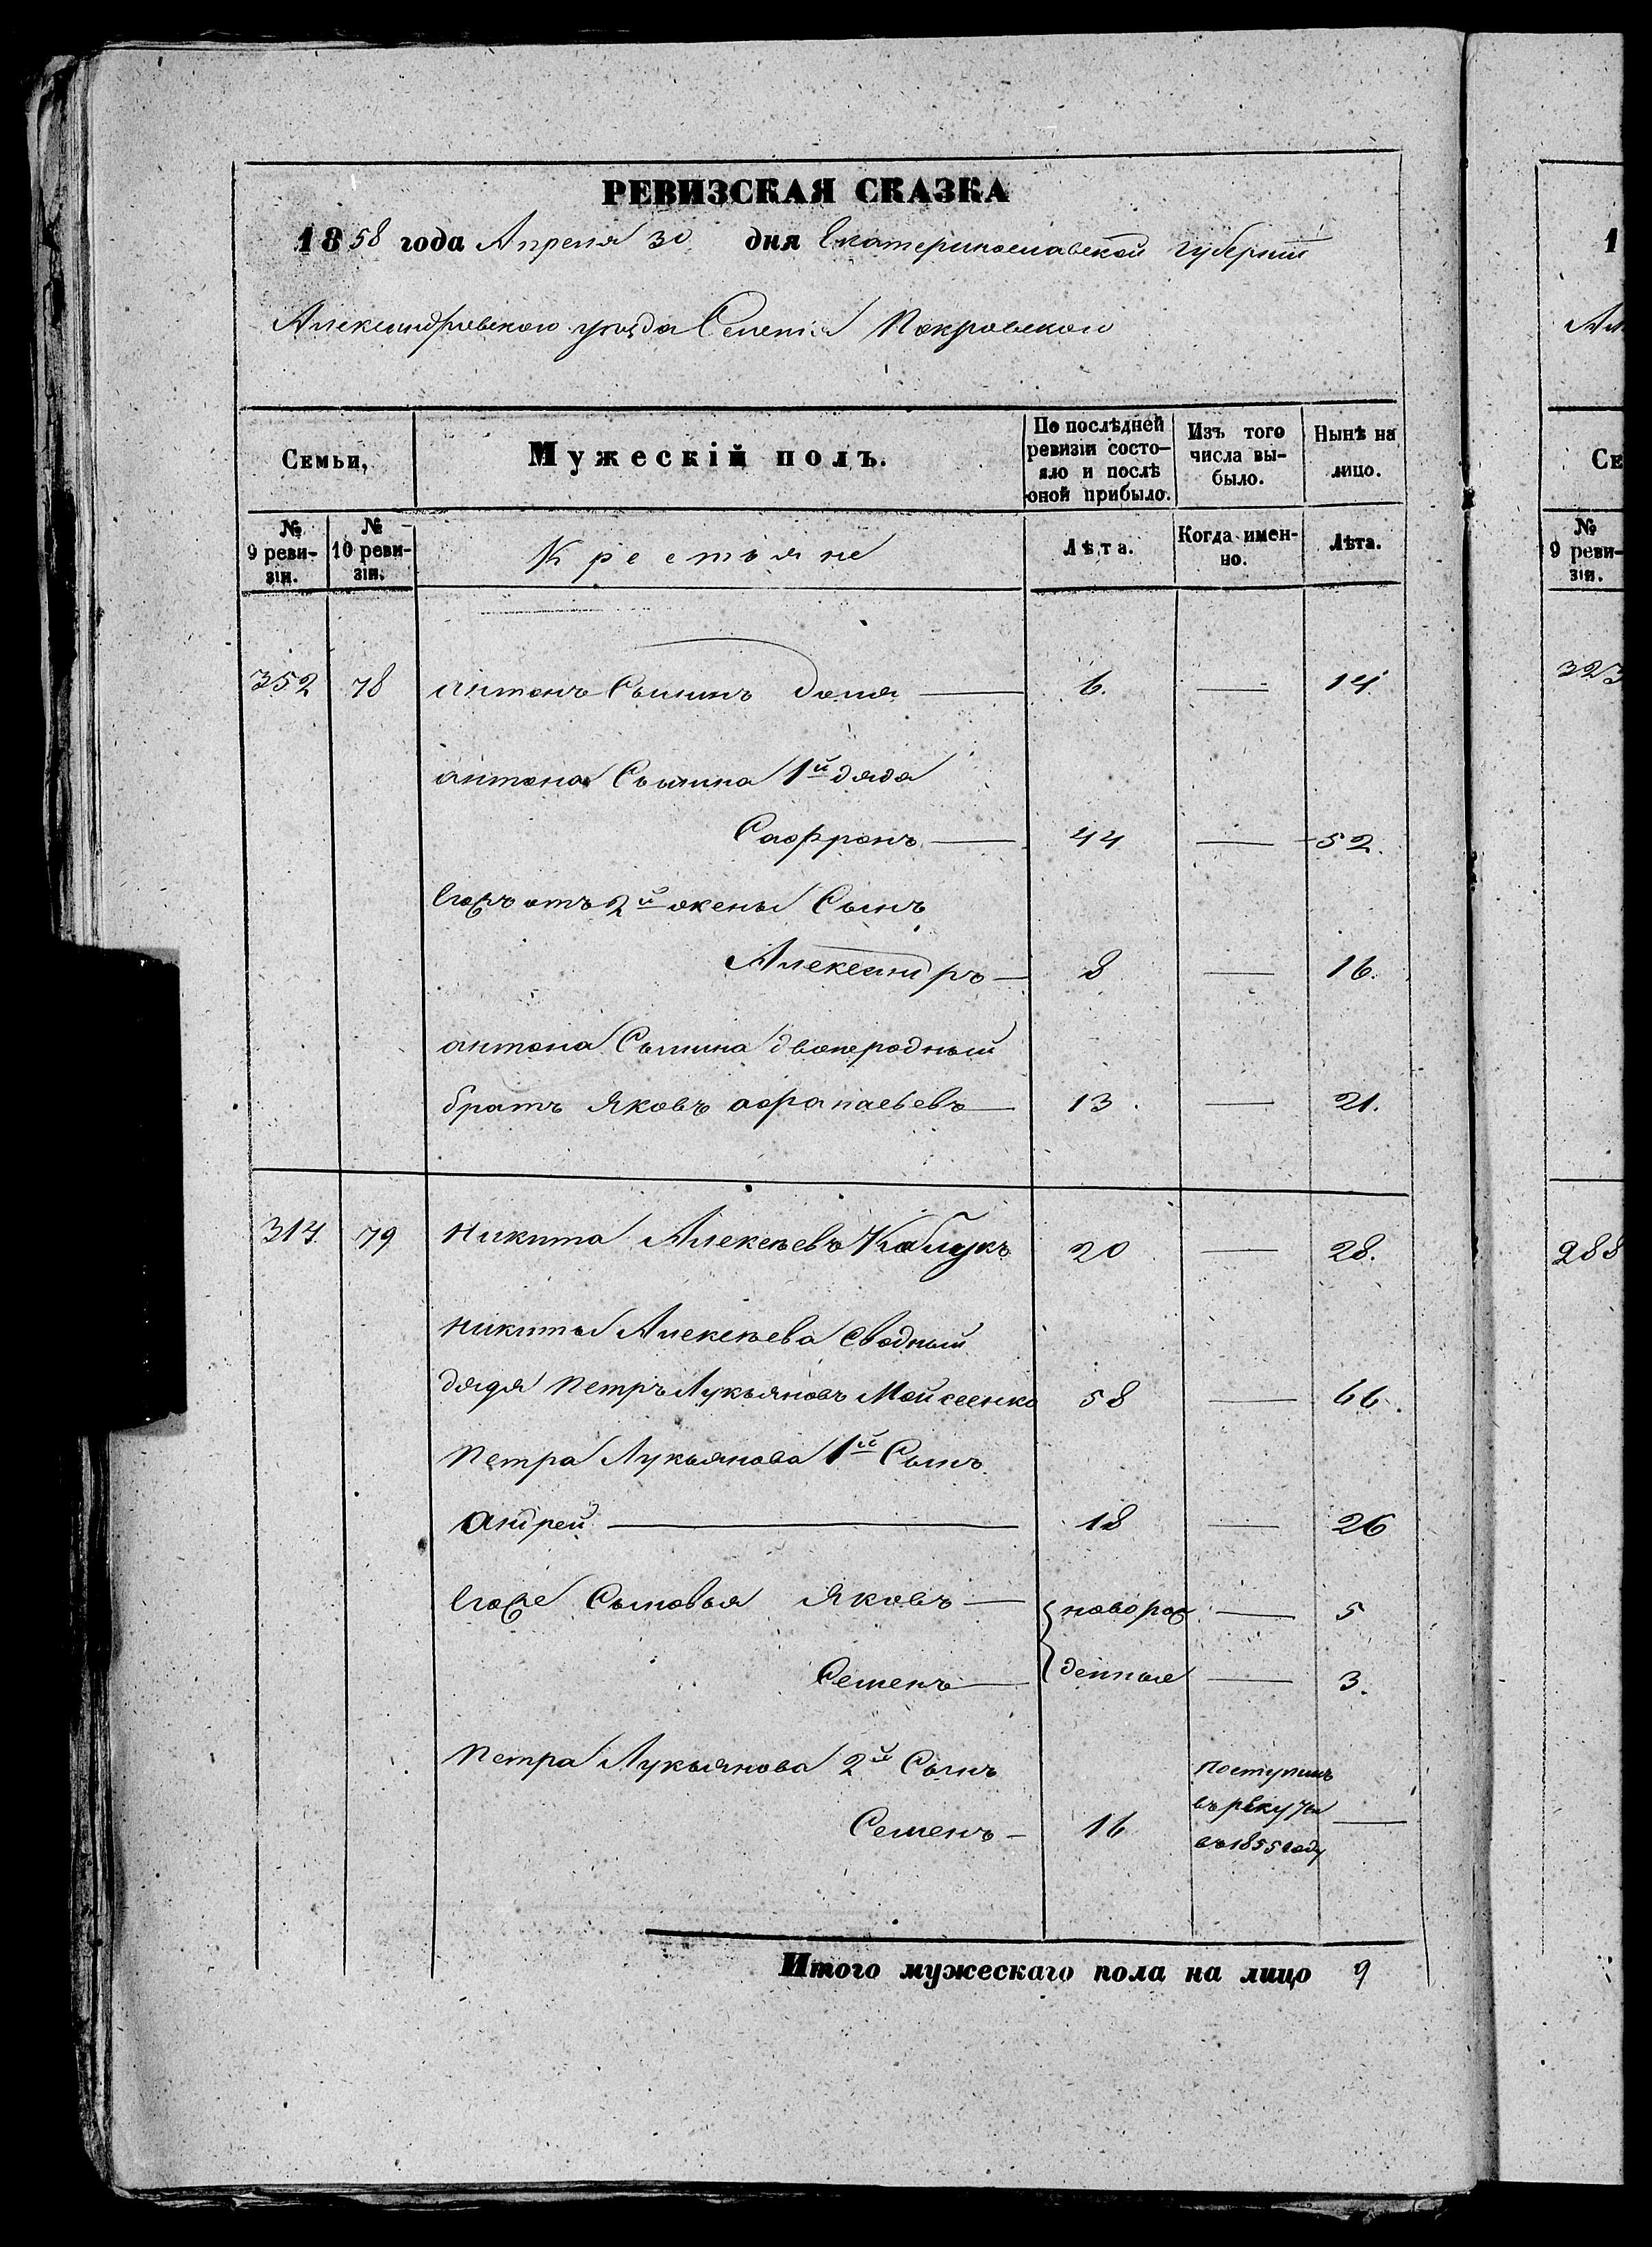 РЕВИЗСКАЯ СКАЗКА
1858 года Апреля 30 дня Екатеринославской губернии
Александровского уезда Селенія Покровского
Семьи, Мужескій полъ. По послѣдней ревизіи состояло и послѣ оной прибыло. Изъ того числа выбыло. Нынѣ на лицо.
№ 9 ревизіи. № 10 ревизіи. Крестьяне Лѣта. Когда именно. Лѣта.
352 78 антонъ 6. — 14
антона 1й дядя
Сафронъ — 44 — 52.
Егожъ отъ 2й жены Сынъ
Александръ — 8 — 16.
антона двоюродный
братъ Яковъ афанасьевъ — 13. — 21.
314 79 Никита Алексѣевъ Каблукъ 20 — 28.
Никиты Алексѣева сводный
дядя Петръ Лукьяновъ Мойсеенко 58 — 66.
Петра Лукьянова 1й Сынъ
андрей — 18 — 26
Егоже Сыновья Яковъ — новорож — 5
Семенъ — денные — 3.
Петра Лукьянова 2й Сынъ поступилъ
Семенъ — 16 въ рекруты —
въ 1855 году
Итого мужескаго пола на лицо 9
1
Ал
Се
№
9 реви-
зіи.
323
288